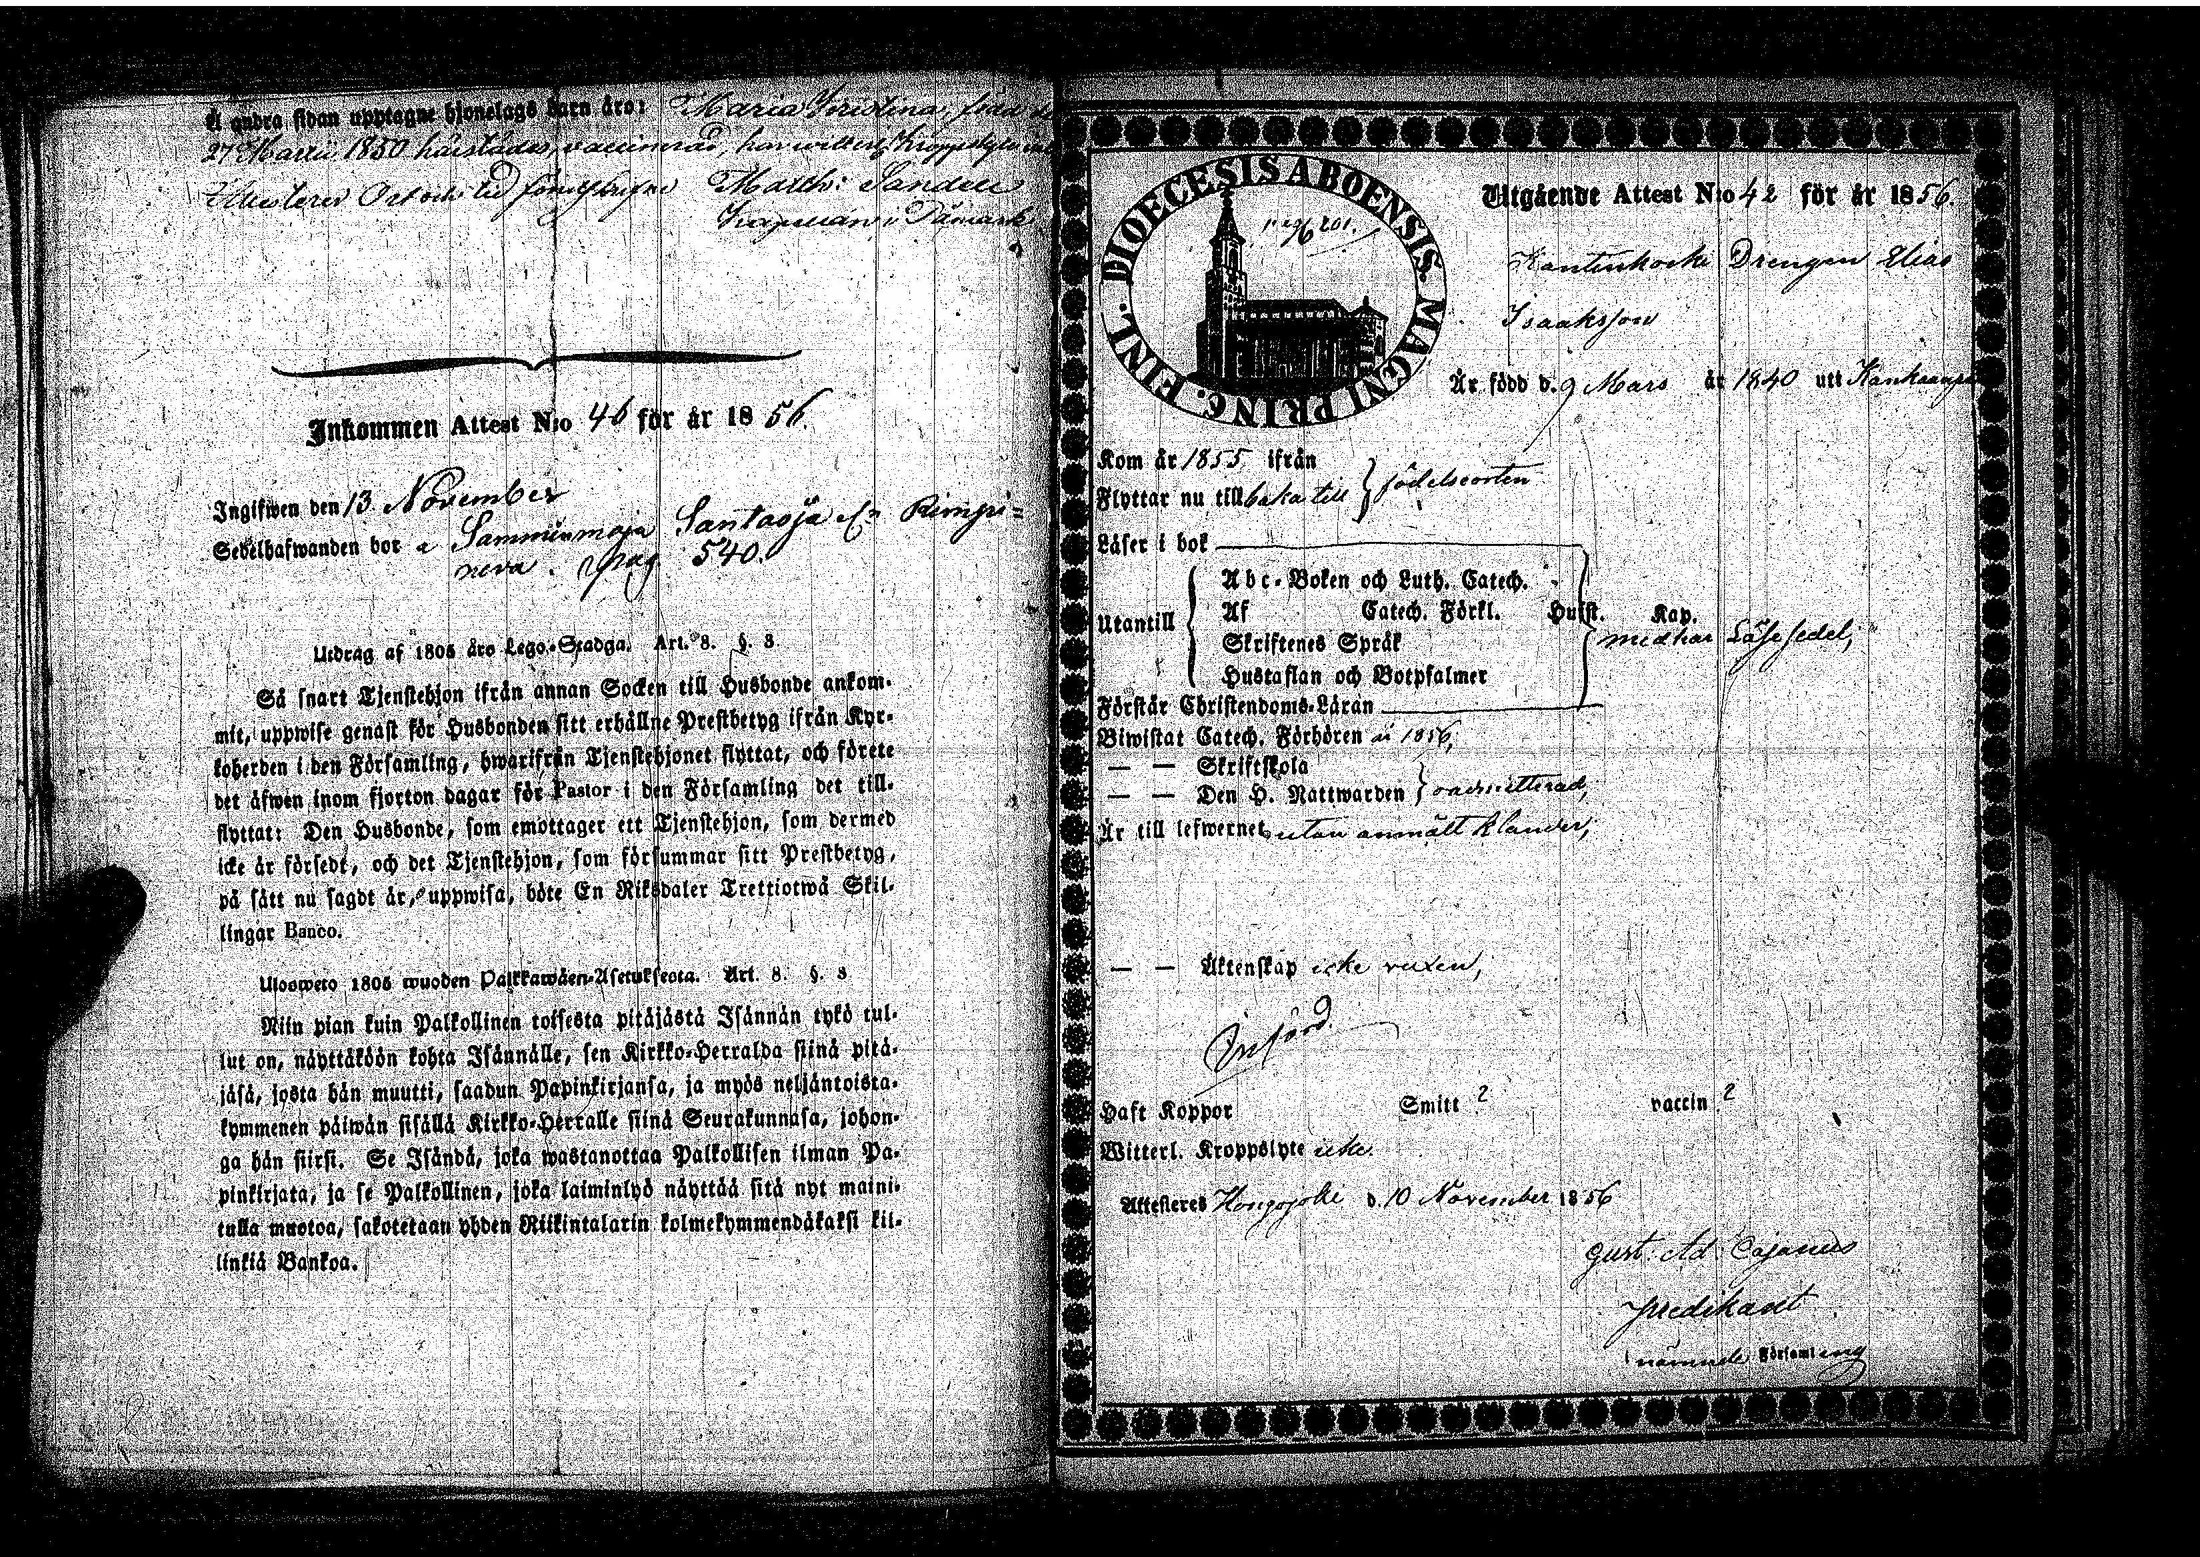 Å andra sidan upptagne hjonelags barn äro: Maria Christina, född d.
27 Martii 1850 härstädes, vaccinerad, har witterl. Kroppslyte
Attesterer Ort och tid föreskrifne Matth: Sandell
Kapellan i Dämark
Inkommen Attest N:o 46 för år 1856.
Ingifwen den 13 November
Sedelhafwanden bor å Samminmaja Santaoja Rimpi=
neva. pag 540.
Utdrag af 1805 års Lego-Stadga. Art. 8. §. 3
Så snart Tjenstehjon ifrån annan Socken till Husbonde ankom-
mit, uppwise genast för Husbonden sitt erhållne Prestbetyg ifrån Kyr-
koherden i den Församling, hwarifrån Tjenstehjonet flyttat, och förete
det äfwen inom fjorton dagar för Pastor i den Församling det till-
flyttat: Den Husbonde, som emottager ett Tjenstehjon, som dermed
icke är försedt, och det Tjenstehjon, som försummar sitt Prestbetyg,
på sätt nu sagdt är, uppwisa, böte En Riksdaler Trettiotwå Skil-
lingar Banco.
Ulosweto 1805 wuoden Palkkawäen-Asetuksesta. Art. 8. §. 3
Niin pian kuin Palkollinen toisesta pitäjästä Isännän tykö tul-
lut on, näyttäköön kohta Isännälle, sen Kirkko-Herralda siinä pitä-
jäsä, josta hän muutti, saadun Papinkirjansa, ja myös neljäntoista-
kymmenen päiwän sisällä Kirkko-Herralle siinä Seurakunnasa, johon-
ga hän siirsi. Se Isändä, joka wastanottaa Palkollisen ilman Pa-
pinkirjata, ja se Palkollinen, joka laiminlyö näyttää sitä nyt maini-
tulla muotoa, sakotetaan yhden Riikintalarin kolmekymmendäkaksi kil-
linkiä Bankoa.
DIOECESIS ABOENSIS MAGNI PRINC. FINL.
Utgående Attest N:o 42 för år 1856.
Drengen Elias
Isaaksson
Är född d. 9 Mars år 1840 utt Kankaanpä
Kom år 1855 ifrån
Flyttar nu tillbaka till } födelseorten
Läser i bok
Utantill
Abc-Boken och Luth. Catech.
Af Catech. Förkl. Hufst. Kap.
medhar Läsesedel,
Skriftenes Språk
Hustaflan och Botpsalmer
Förstår Christendoms-Läran
Biwistat Catech. Förhören år 1856,
— — Skriftskola
— — Den H. Nattwarden } oadmitterad,
Är till lefwernet utan anmält klander,
— — Äktenskap icke vuxen,
Införd.
Haft Koppor Smitt ? vaccin ?
Witterl. Kroppslyte icke.
Attesteres Hongojoki d. 10 November 1856
Gust. Ad. Cajanus
predikant
i nämnde Församling